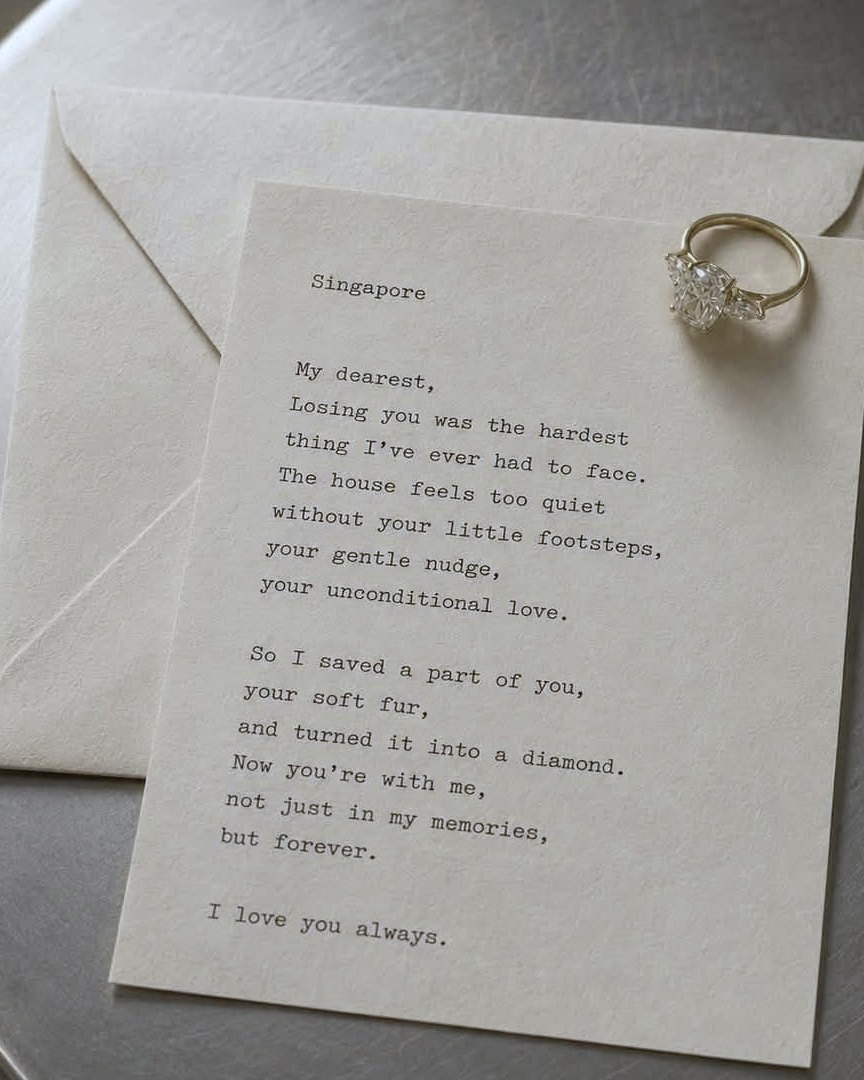 Singapore
My dearest,
Losing you was the hardest
thing I’ve ever had to face.
The house feels too quiet
without your little footsteps,
your gentle nudge,
your unconditional love.
So I saved a part of you,
your soft fur,
and turned it into a diamond.
Now you’re with me,
not just in my memories,
but forever.
I love you always.